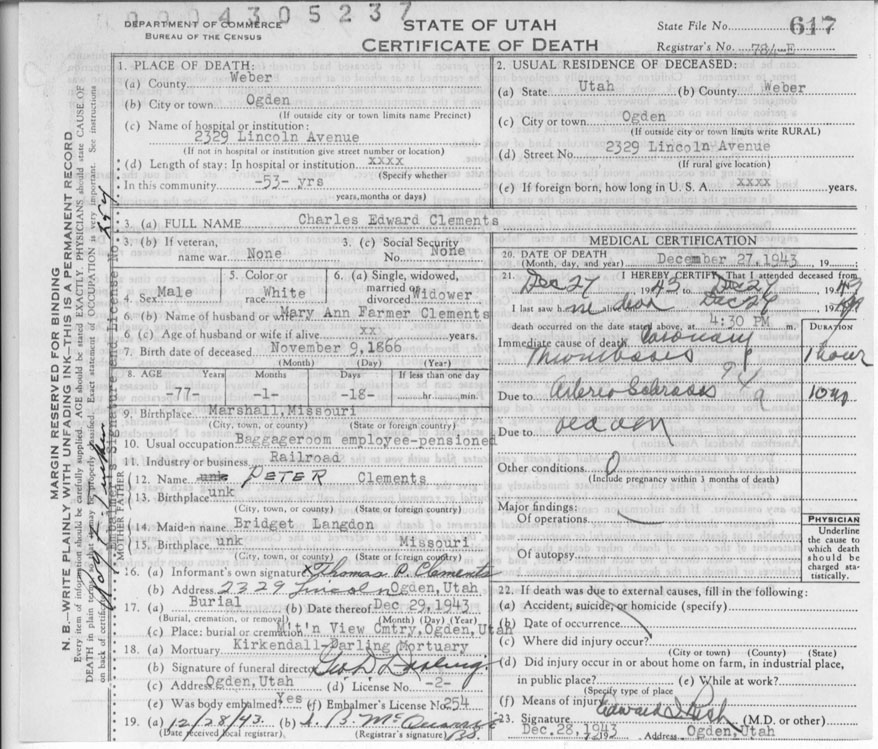 0004305237
DEPARTMENT OF COMMERCE
BUREAU OF THE CENSUS
STATE OF UTAH
CERTIFICATE OF DEATH
State File No. 617
Registrar's No. 784-E
MARGIN RESERVED FOR BINDING
N. B.—WRITE PLAINLY WITH UNFADING INK—THIS IS A PERMANENT RECORD
Every item of information should be carefully supplied. AGE should be stated EXACTLY. PHYSICIANS should state CAUSE OF
DEATH in plain terms, so that it may be properly classified. Exact statement of OCCUPATION is very important. See instructions
on back of certificate.
Embalmer's Signature and License No. 254
1. PLACE OF DEATH:
(a) County Weber
(b) City or town Ogden
(If outside city or town limits name Precinct)
(c) Name of hospital or institution:
2329 Lincoln Avenue
(If not in hospital or institution give street number or location)
(d) Length of stay: In hospital or institution xxxx
(Specify whether
In this community -53- yrs
years, months or days)
2. USUAL RESIDENCE OF DECEASED:
(a) State Utah (b) County Weber
(c) City or town Ogden
(If outside city or town limits write RURAL)
(d) Street No. 2329 Lincoln Avenue
(If rural give location)
(e) If foreign born, how long in U. S. A. xxxx years.
3. (a) FULL NAME Charles Edward Clements
3. (b) If veteran,
name war None
3. (c) Social Security
No. None
4. Sex Male
5. Color or
race White
6. (a) Single, widowed,
married or
divorced Widower
6. (b) Name of husband or wife Mary Ann Farmer Clements
6 (c) Age of husband or wife if alive xx years.
7. Birth date of deceased November 9, 1866
(Month) (Day) (Year)
8. AGE Years Months Days If less than one day
-77- -1- -18- hr. min.
9. Birthplace Marshall, Missouri
(City, town, or county) (State or foreign country)
10. Usual occupation Baggageroom employee-pensioned
11. Industry or business Railroad
FATHER
12. Name unk PETER Clements
13. Birthplace unk
(City, town, or county) (State or foreign country)
MOTHER
14. Maiden name Bridget Langdon
15. Birthplace unk Missouri
(City, town, or county) (State or foreign country)
16. (a) Informant's own signature x Thomas P. Clements
(b) Address 2329 Lincoln Ogden, Utah
17. (a) Burial (b) Date thereof Dec 29, 1943
(Burial, cremation, or removal) (Month) (Day) (Year)
(c) Place: burial or cremation Mt'n View Cmtry, Ogden, Utah
18. (a) Mortuary Kirkendall-Darling Mortuary
(b) Signature of funeral director Geo. D. Darling
(c) Address Ogden, Utah (d) License No. -2-
(e) Was body embalmed? Yes (f) Embalmer's License No. 254
19. (a) 12/28/43. (b)
(Date received local registrar). (Registrar's signature)
MEDICAL CERTIFICATION
20. DATE OF DEATH December 27, 1943
(Month, day, and year) 19
21. I HEREBY CERTIFY That I attended deceased from
Dec 27 1943 to Dec 27 1943
I last saw him alive on Dec 26 19
death occurred on the date stated above, at 4:30 PM m.
Immediate cause of death Coronary
Thrombosis
94a
DURATION
1 hour
Due to Arterio Sclerosis
10 yr
Due to
Other conditions 0
(Include pregnancy within 3 months of death)
Major findings:
Of operations
Of autopsy
PHYSICIAN
Underline
the cause to
which death
should be
charged sta-
tistically.
22. If death was due to external causes, fill in the following:
(a) Accident, suicide, or homicide (specify)
(b) Date of occurrence
(c) Where did injury occur?
(City or town) (County) (State)
(d) Did injury occur in or about home on farm, in industrial place,
in public place? (e) While at work?
(Specify type of place
(f) Means of injury
23. Signature Edward I. Rich (M.D. or other)
Dec. 28, 1943 Address Ogden, Utah